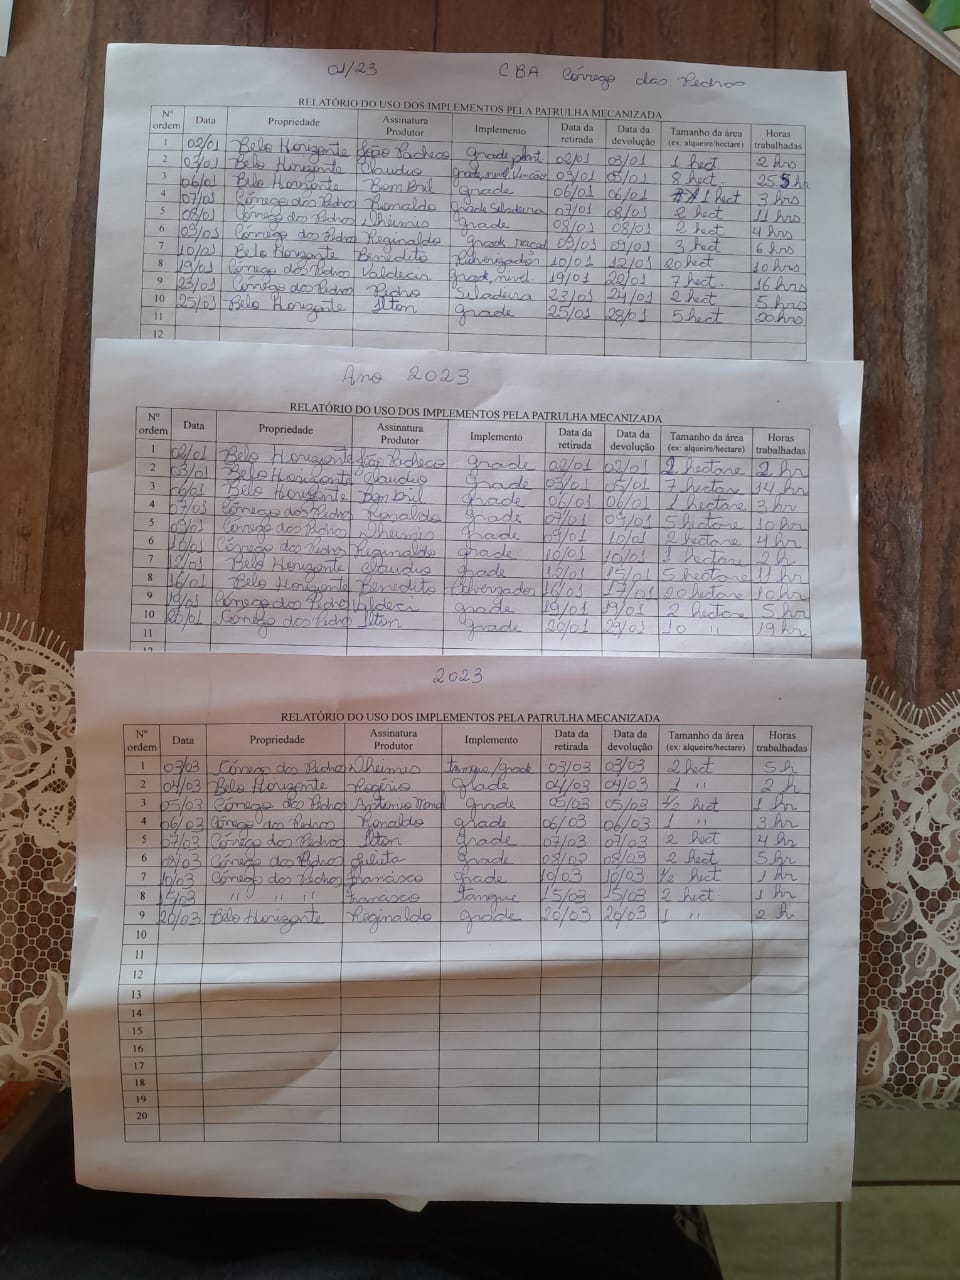 01/23 CBA Córrego das Pedras
RELATÓRIO DO USO DOS IMPLEMENTOS PELA PATRULHA MECANIZADA
Nº ordem Data Propriedade Assinatura Produtor Implemento Data da retirada Data da devolução Tamanho da área (ex: alqueire/hectare) Horas trabalhadas
1 02/01 Belo Horizonte João Pacheco grade plant. 02/01 03/01 1 hect 2 hrs
2 03/01 Belo Horizonte Claudio grade, nivel, 03/01 05/01 8 hect. hr
3 06/01 Belo Horizonte Bombril grade 06/01 06/01 1 hect 3 hrs
4 07/01 Córrego das Pedras Ronaldo grade Siladeira 07/01 08/01 2 hect 11 hrs
5 08/01 Córrego das Pedras Dheimis grade 08/01 08/01 2 hect 4 hrs
6 09/01 Córrego das Pedras Reginaldo grade 09/01 09/01 3 hect 6 hrs
7 10/01 Belo Horizonte Benedito Pulverizador 10/01 12/01 20 hect 10 hrs
8 19/01 Córrego das Pedras Valdecir grade, nivel. 19/01 22/01 7 hect. 16 hrs
9 23/01 Córrego das Pedras Pedro Siladeira 23/01 24/01 2 hect 5 hrs
10 25/01 Belo Horizonte Ilton grade 25/01 28/01 5 hect 20 hrs
11
12
Ano 2023
RELATÓRIO DO USO DOS IMPLEMENTOS PELA PATRULHA MECANIZADA
Nº ordem Data Propriedade Assinatura Produtor Implemento Data da retirada Data da devolução Tamanho da área (ex: alqueire/hectare) Horas trabalhadas
1 02/01 Belo Horizonte João Pacheco grade 02/01 02/01 2 hectare 2 hr
2 03/01 Belo Horizonte Claudio grade 03/01 05/01 7 hectare 14 hr
3 06/01 Belo Horizonte Bombril grade 06/01 06/01 1 hectare 3 hr
4 07/01 Córrego das Pedras Ronaldo grade 07/01 09/01 5 hectare 10 hr
5 09/01 Córrego das Pedras Dheimis grade 09/01 10/01 2 hectare 4 hr
6 10/01 Córrego das Pedras Reginaldo grade 10/01 10/01 1 hectare 2 h
7 12/01 Belo Horizonte Claudio grade 12/01 15/01 5 hectare 11 hr
8 16/01 Belo Horizonte Benedito Pulverizador 16/01 17/01 20 hectare 10 hr
9 19/01 Córrego das Pedras Valdecir grade 19/01 19/01 2 hectare 5 hr
10 20/01 Córrego das Pedras Ilton grade 20/01 29/01 10 " 19 hr
11
2023
RELATÓRIO DO USO DOS IMPLEMENTOS PELA PATRULHA MECANIZADA
Nº ordem Data Propriedade Assinatura Produtor Implemento Data da retirada Data da devolução Tamanho da área (ex: alqueire/hectare) Horas trabalhadas
1 03/03 Córrego das Pedras Dheimis tanque/grade 03/03 03/03 2 hect 5 h
2 04/03 Belo Horizonte Rogério grade 04/03 04/03 1 " 2 h
3 05/03 Córrego das Pedras Antonio grade 05/03 05/03 1/2 hect 1 hr
4 06/03 Córrego das Pedras Ronaldo grade 06/03 06/03 1 " 3 hr
5 07/03 Córrego das Pedras Ilton grade 07/03 07/03 2 hect 4 hr
6 08/03 Córrego das Pedras Julieta grade 08/03 08/03 2 hect 5 hr
7 10/03 Córrego das Pedras Francisco grade 10/03 10/03 1/2 hect 1 hr
8 15/03 " " " " Francisco tanque 15/03 15/03 2 hect. 1 hr
9 20/03 Belo Horizonte Reginaldo grade 20/03 20/03 1 " 2 h
10
11
12
13
14
15
16
17
18
19
20